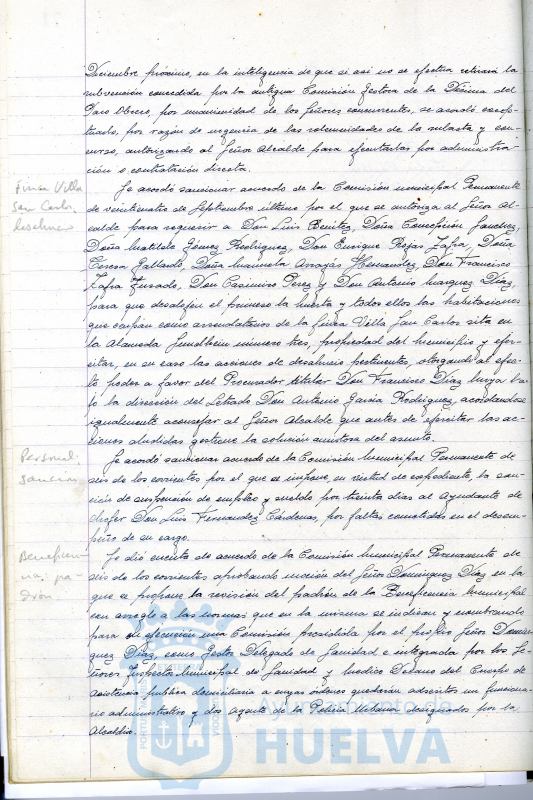 Diciembre próximo, en la inteligencia de que si asi no se efectua retirará la
subvención concedida por la antigua Comisión Gestora de la Décima del
Paro Obrero, por unanimidad de los Señores concurrentes, se acordó excep-
tuarlo, por razón de urgencia de las solemnidades de la subasta y con-
curso, autorizando al Señor Alcalde para ejecutarlas por administra-
ción o contratación directa.
Finca Villa
San Carlos,
desahucio
Se acordó sancionar acuerdo de la Comisión municipal Permanente
de veinticuatro de Septiembre último por el que se autoriza al Señor Al-
calde para requerir a Don Luis Benitez, Doña Concepción Sanchez,
Doña Matilde Gómez Rodriguez, Don Enrique Rojas Zafra, Doña
Teresa Gallardo, Doña Manuela Arragás Hernandez, Don Francisco
Zafra Jurado, Don Casimiro Perez y Don Antonio Marquez Diaz,
para que desalojen el primero la huerta y todos ellos las habitaciones
que ocupan como arrendatarios de la finca Villa San Carlos sita en
la Alameda Sundheim número tres, propiedad del Municipio y ejer-
citar, en su caso las acciones de desahucio pertinentes, otorgando al efec-
to poder a favor del Procurador titular Don Francisco Diaz y ba-
jo la dirección del Letrado Don Antonio Garcia Rodriguez, acordandose
igualmente aconsejar al Señor Alcalde que antes de ejercitar las ac-
ciones aludidas gestione la solución amistosa del asunto.
Personal:
sanción
Se acordó sancionar acuerdo de la Comisión Municipal Permanente de
seis de los corrientes por el que se impone, en virtud de expediente, la san-
ción de suspensión de empleo y sueldo por treinta dias al Ayudante de
chofer Don Luis Fernandez Cárdenas, por faltas cometidas en el desem-
peño de su cargo.
Beneficen-
cia, pa-
drón
Se dió cuenta de acuerdo de la Comisión Municipal Permanente de
seis de los corrientes aprobando moción del Señor Dominguez Diaz en la
que se propone la revisión del padrón de la Beneficencia Municipal
con arreglo a las normas que en la misma se indican y nombrando
para su ejecución una Comisión presidida por el propio Señor Domin-
guez Diaz, como Gestor Delegado de Sanidad e integrada por los Se-
ñores Inspector Municipal de Sanidad y Medico Decano del Cuerpo de
Asistencia publica domiciliaria a cuyas órdenes quedarán adscritos un funciona-
rio administrativo y dos agentes de la Policia Urbana designados por la
Alcaldia.
Ayuntamiento de
HUELVA